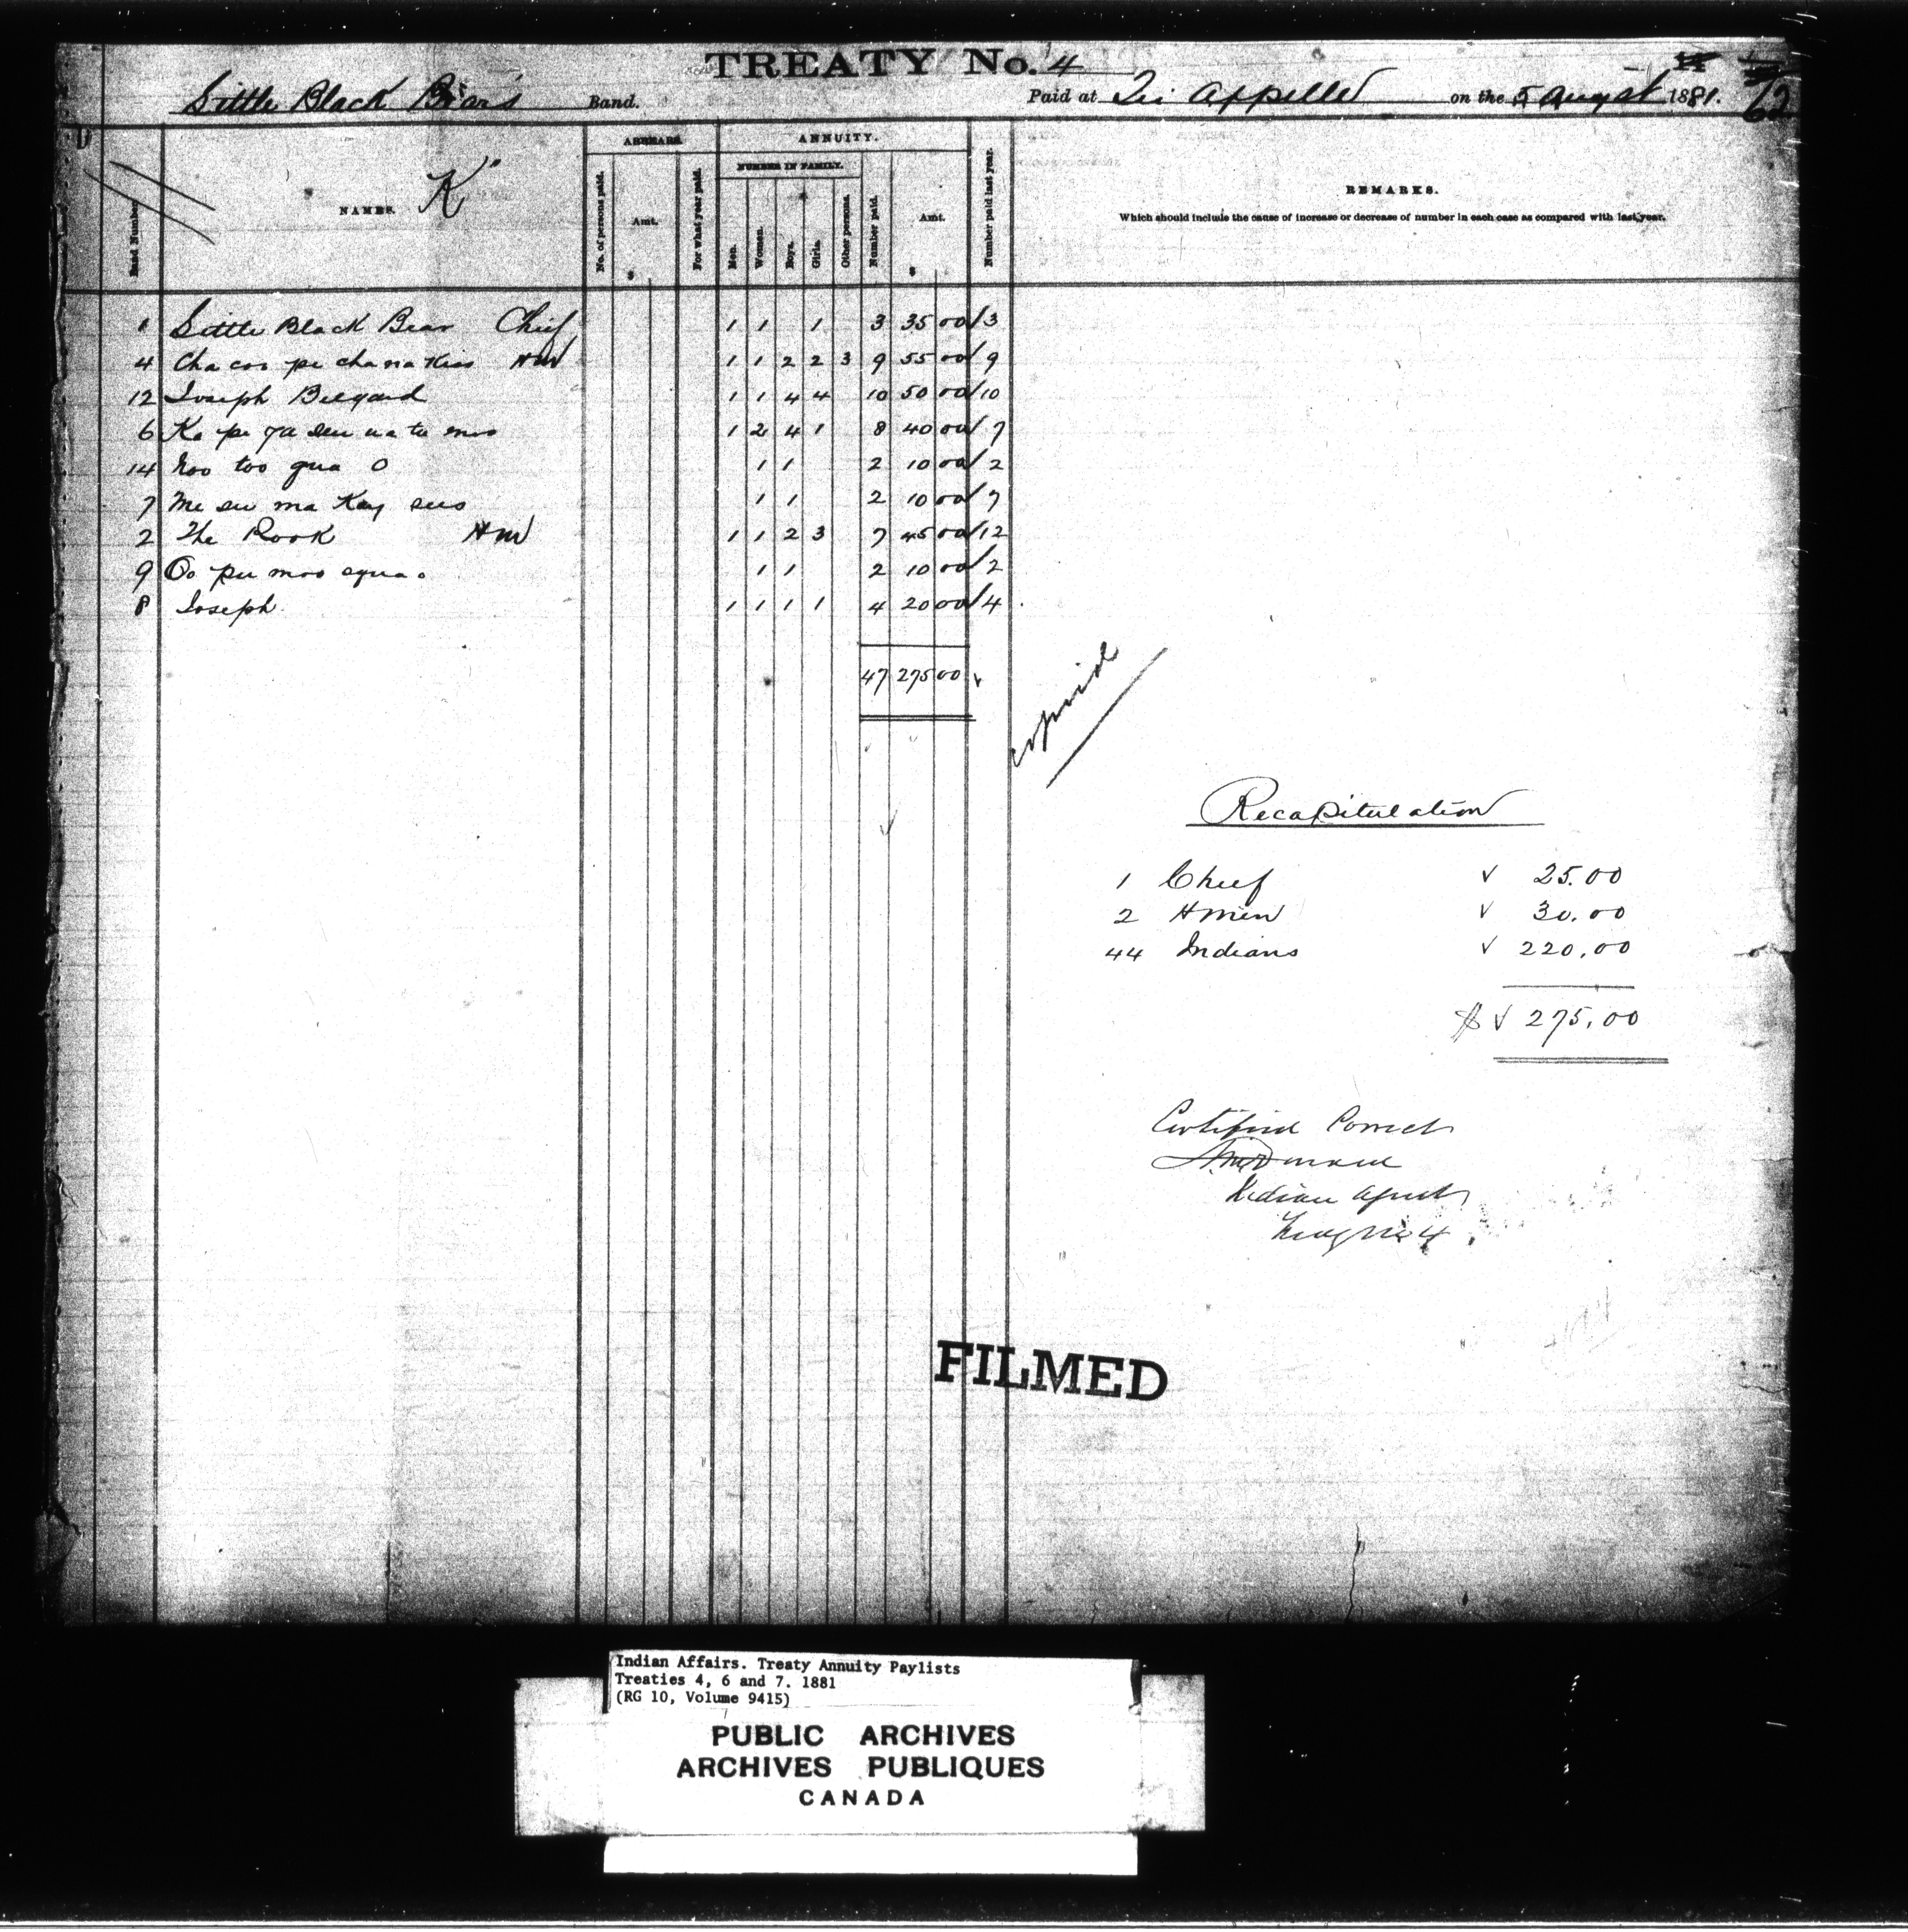 TREATY No. 4
Little Black Bear's Band. Paid at Qu Appelle on the 5 August 1881. 62
"K"
ARREARS. ANNUITY.
NUMBER IN FAMILY.
Band Number. NAMES. No. of persons paid. Amt. For what year paid. Men. Women. Boys. Girls. Other persons. Number paid. Amt. Number paid last year. REMARKS.
Which should include the cause of increase or decrease of number in each case as compared with last year.
$ $
1 Little Black Bear Chief 1 1 1 3 35 00 3
4 Cha coo pe cha na Kias HM 1 1 2 2 3 9 55 00 9
12 Joseph Belgard 1 1 4 4 10 50 00 10
6 Ka pe 1 2 4 1 8 40 00 7
14 Noo too qua O 1 1 2 10 00 2
7 Me su ma Kay sees 1 1 2 10 00 7
2 The Rook HM 1 1 2 3 7 45 00 12
9 Oo pee moo equa o 1 1 2 10 00 2
8 Joseph 1 1 1 1 4 20 00 4
47 275 00
copied
Recapitulation
1 Chief 25.00
2 Hmen 30.00
44 Indians 220.00
$ 275.00
Certified Correct
A. McDonald
Indian Agent
Treaty No 4
FILMED
Indian Affairs. Treaty Annuity Paylists
Treaties 4, 6 and 7. 1881
(RG 10, Volume 9415)
PUBLIC ARCHIVES
ARCHIVES PUBLIQUES
CANADA